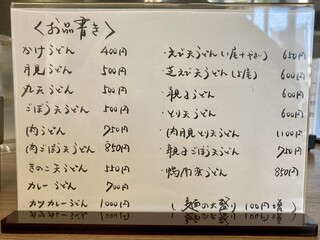 〈お品書き〉
かけうどん 400円
月見うどん 500円
丸天うどん 500円
ごぼう天うどん 500円
肉うどん 750円
肉ごぼう天うどん 850円
きのこ天うどん 550円
カレーうどん 700円
カツカレーうどん 1000円
・えび天うどん(1尾+やさい) 650円
・芝えび天うどん(5尾) 600円
・親子うどん 600円
・とり天うどん 600円
・肉月見とり天うどん 1100円
・親子ごぼう天うどん 750円
・鴨肉うどん 850円
(麺の大盛り 100円増)